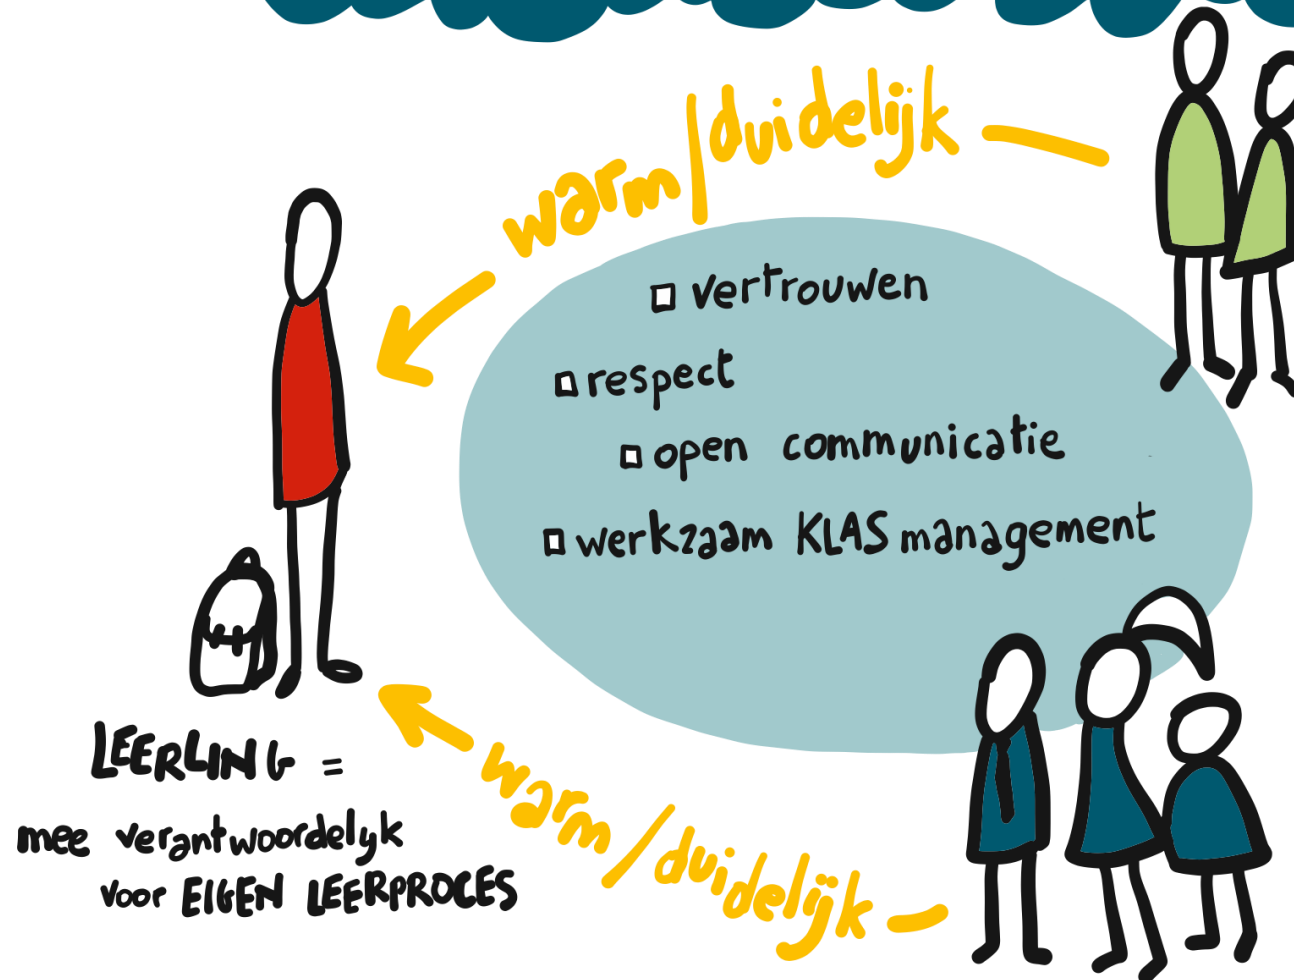 warm/duidelijk
vertrouwen
respect
open communicatie
werkzaam KLASmanagement
LEERLING =
mee verantwoordelyk
voor EIGEN LEERPROCES
warm/duidelijk